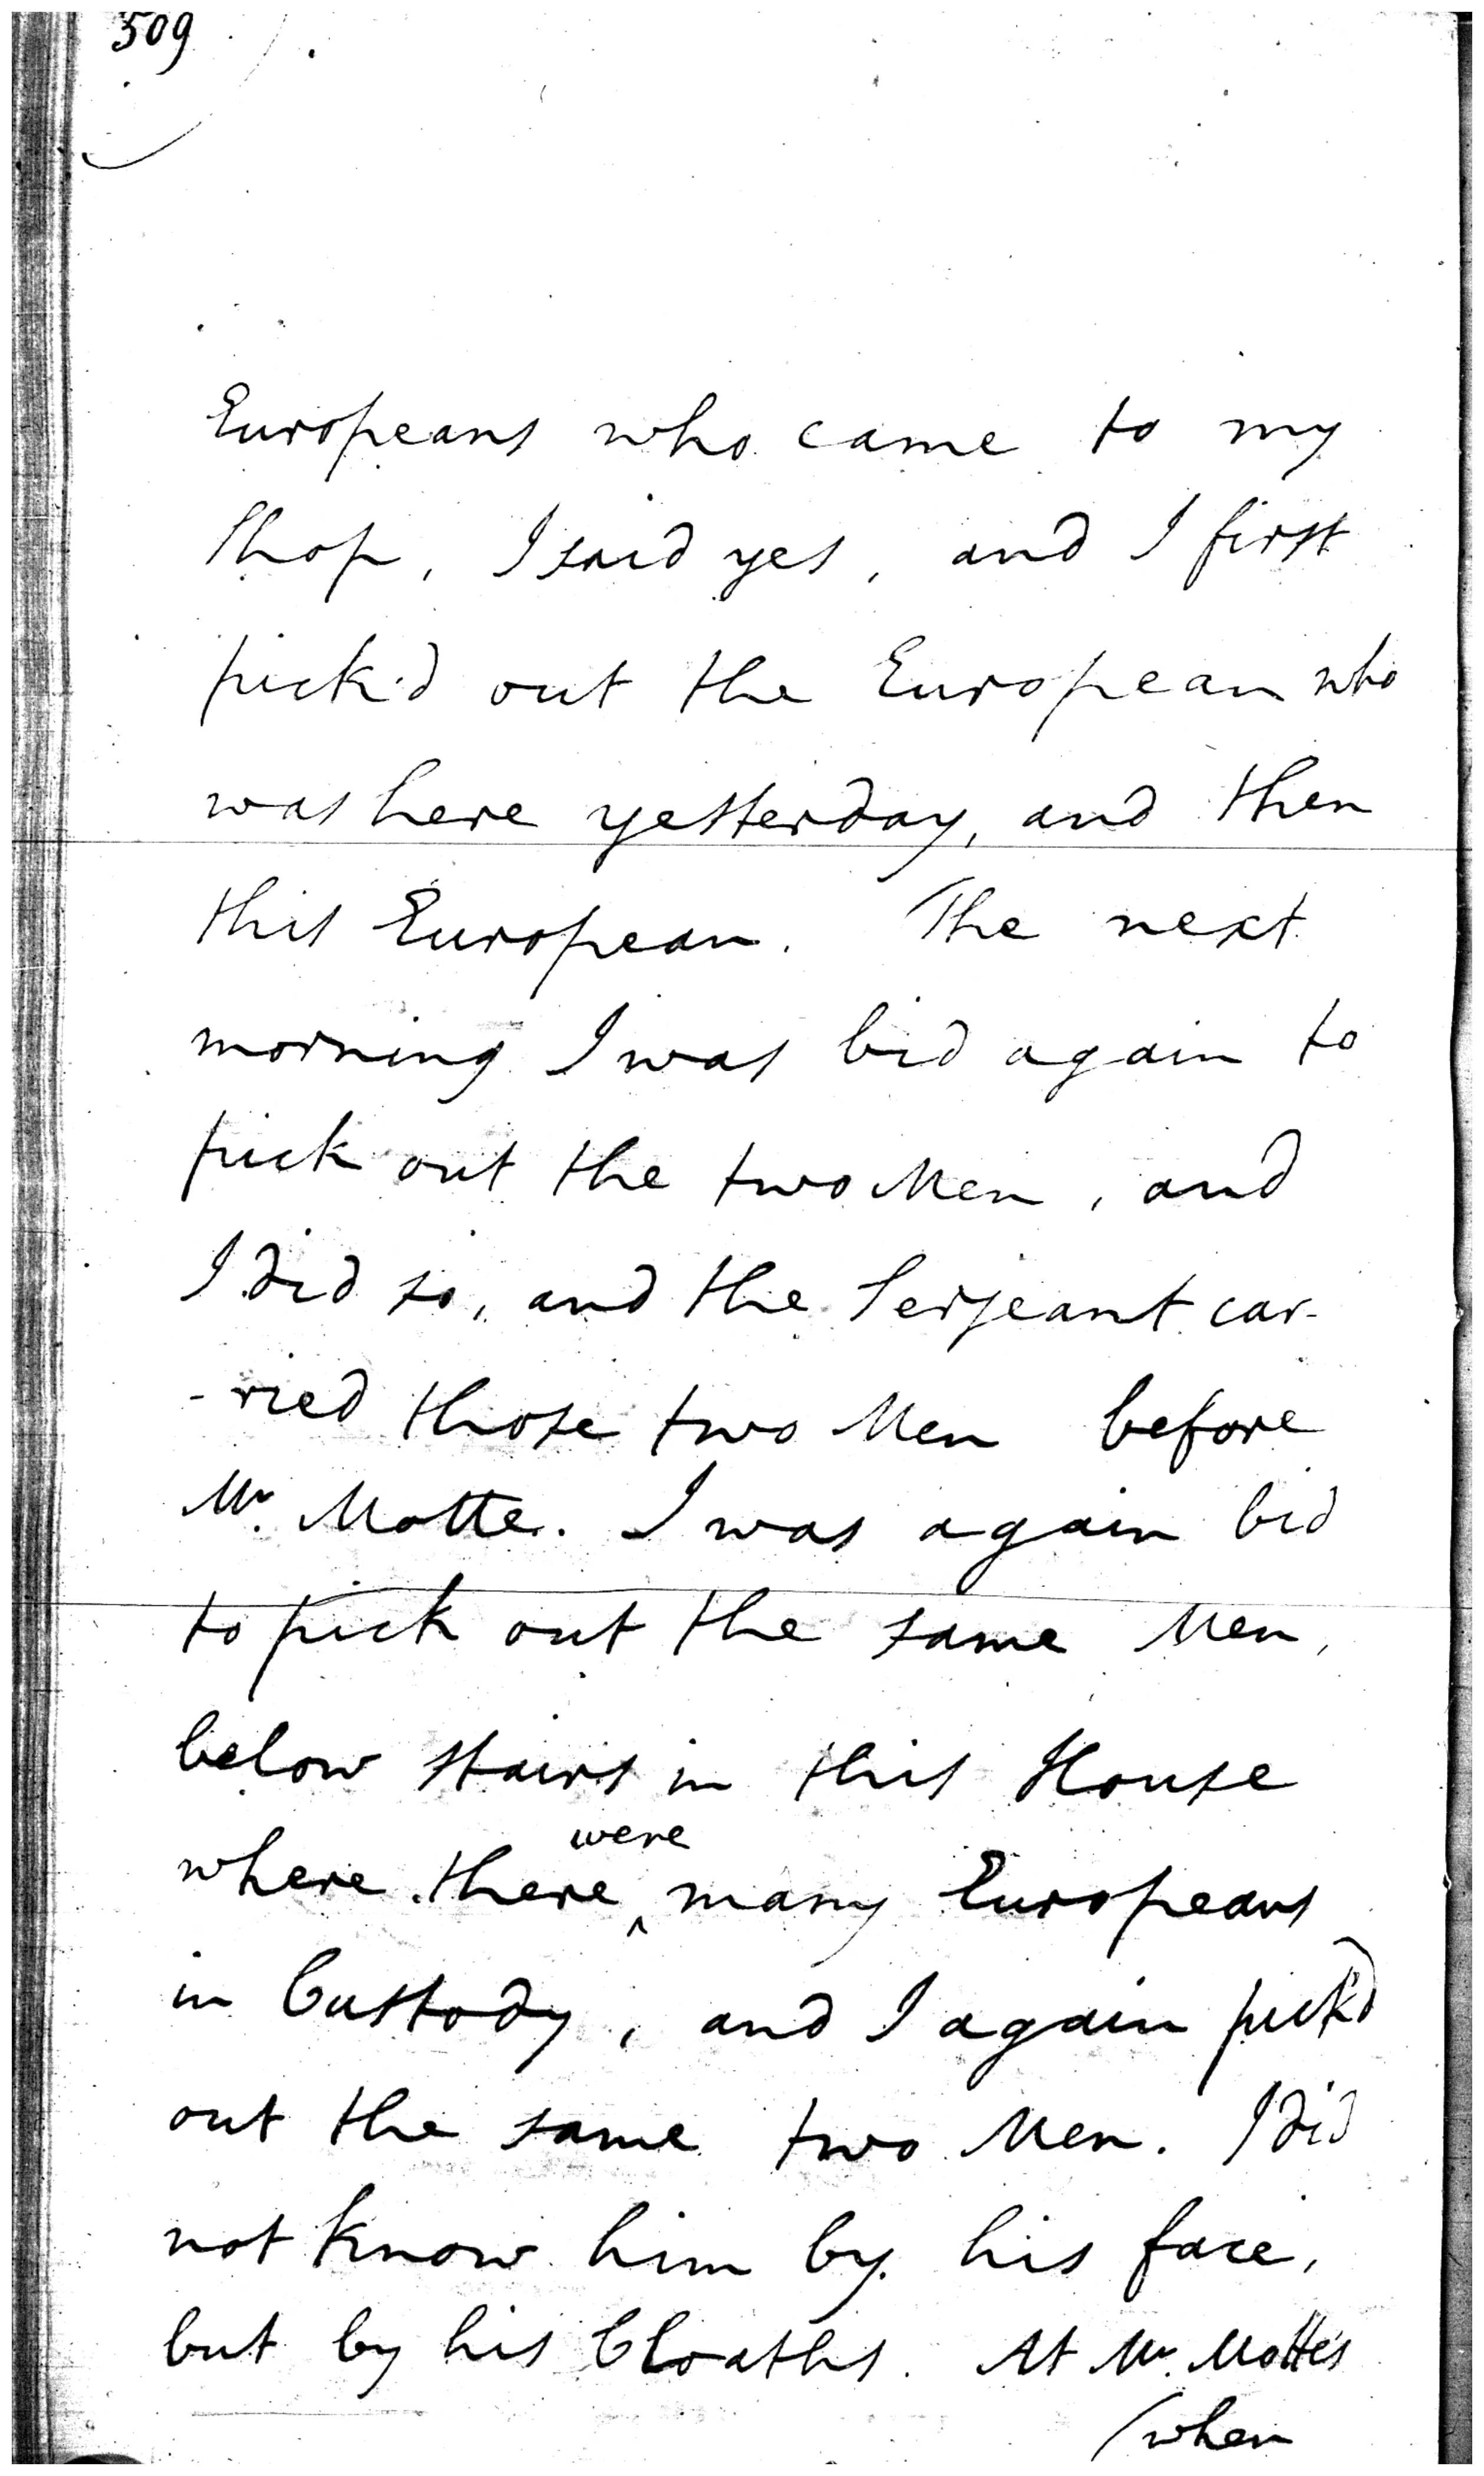 509
Europeans who came to my
Shop, I said yes, and I first
pick'd out the European who
was here yesterday, and then
this European. The next
morning I was bid again to
pick out the two Men, and
I did so, and the Serjeant car-
-ried those two Men before
Mr. Motte. I was again bid
to pick out the same Men,
below stairs in this House
where there were many Europeans
in Custody, and I again pick'd
out the same two Men. I did
not know him by his face,
but by his Cloaths. At Mr. Motte's
(when